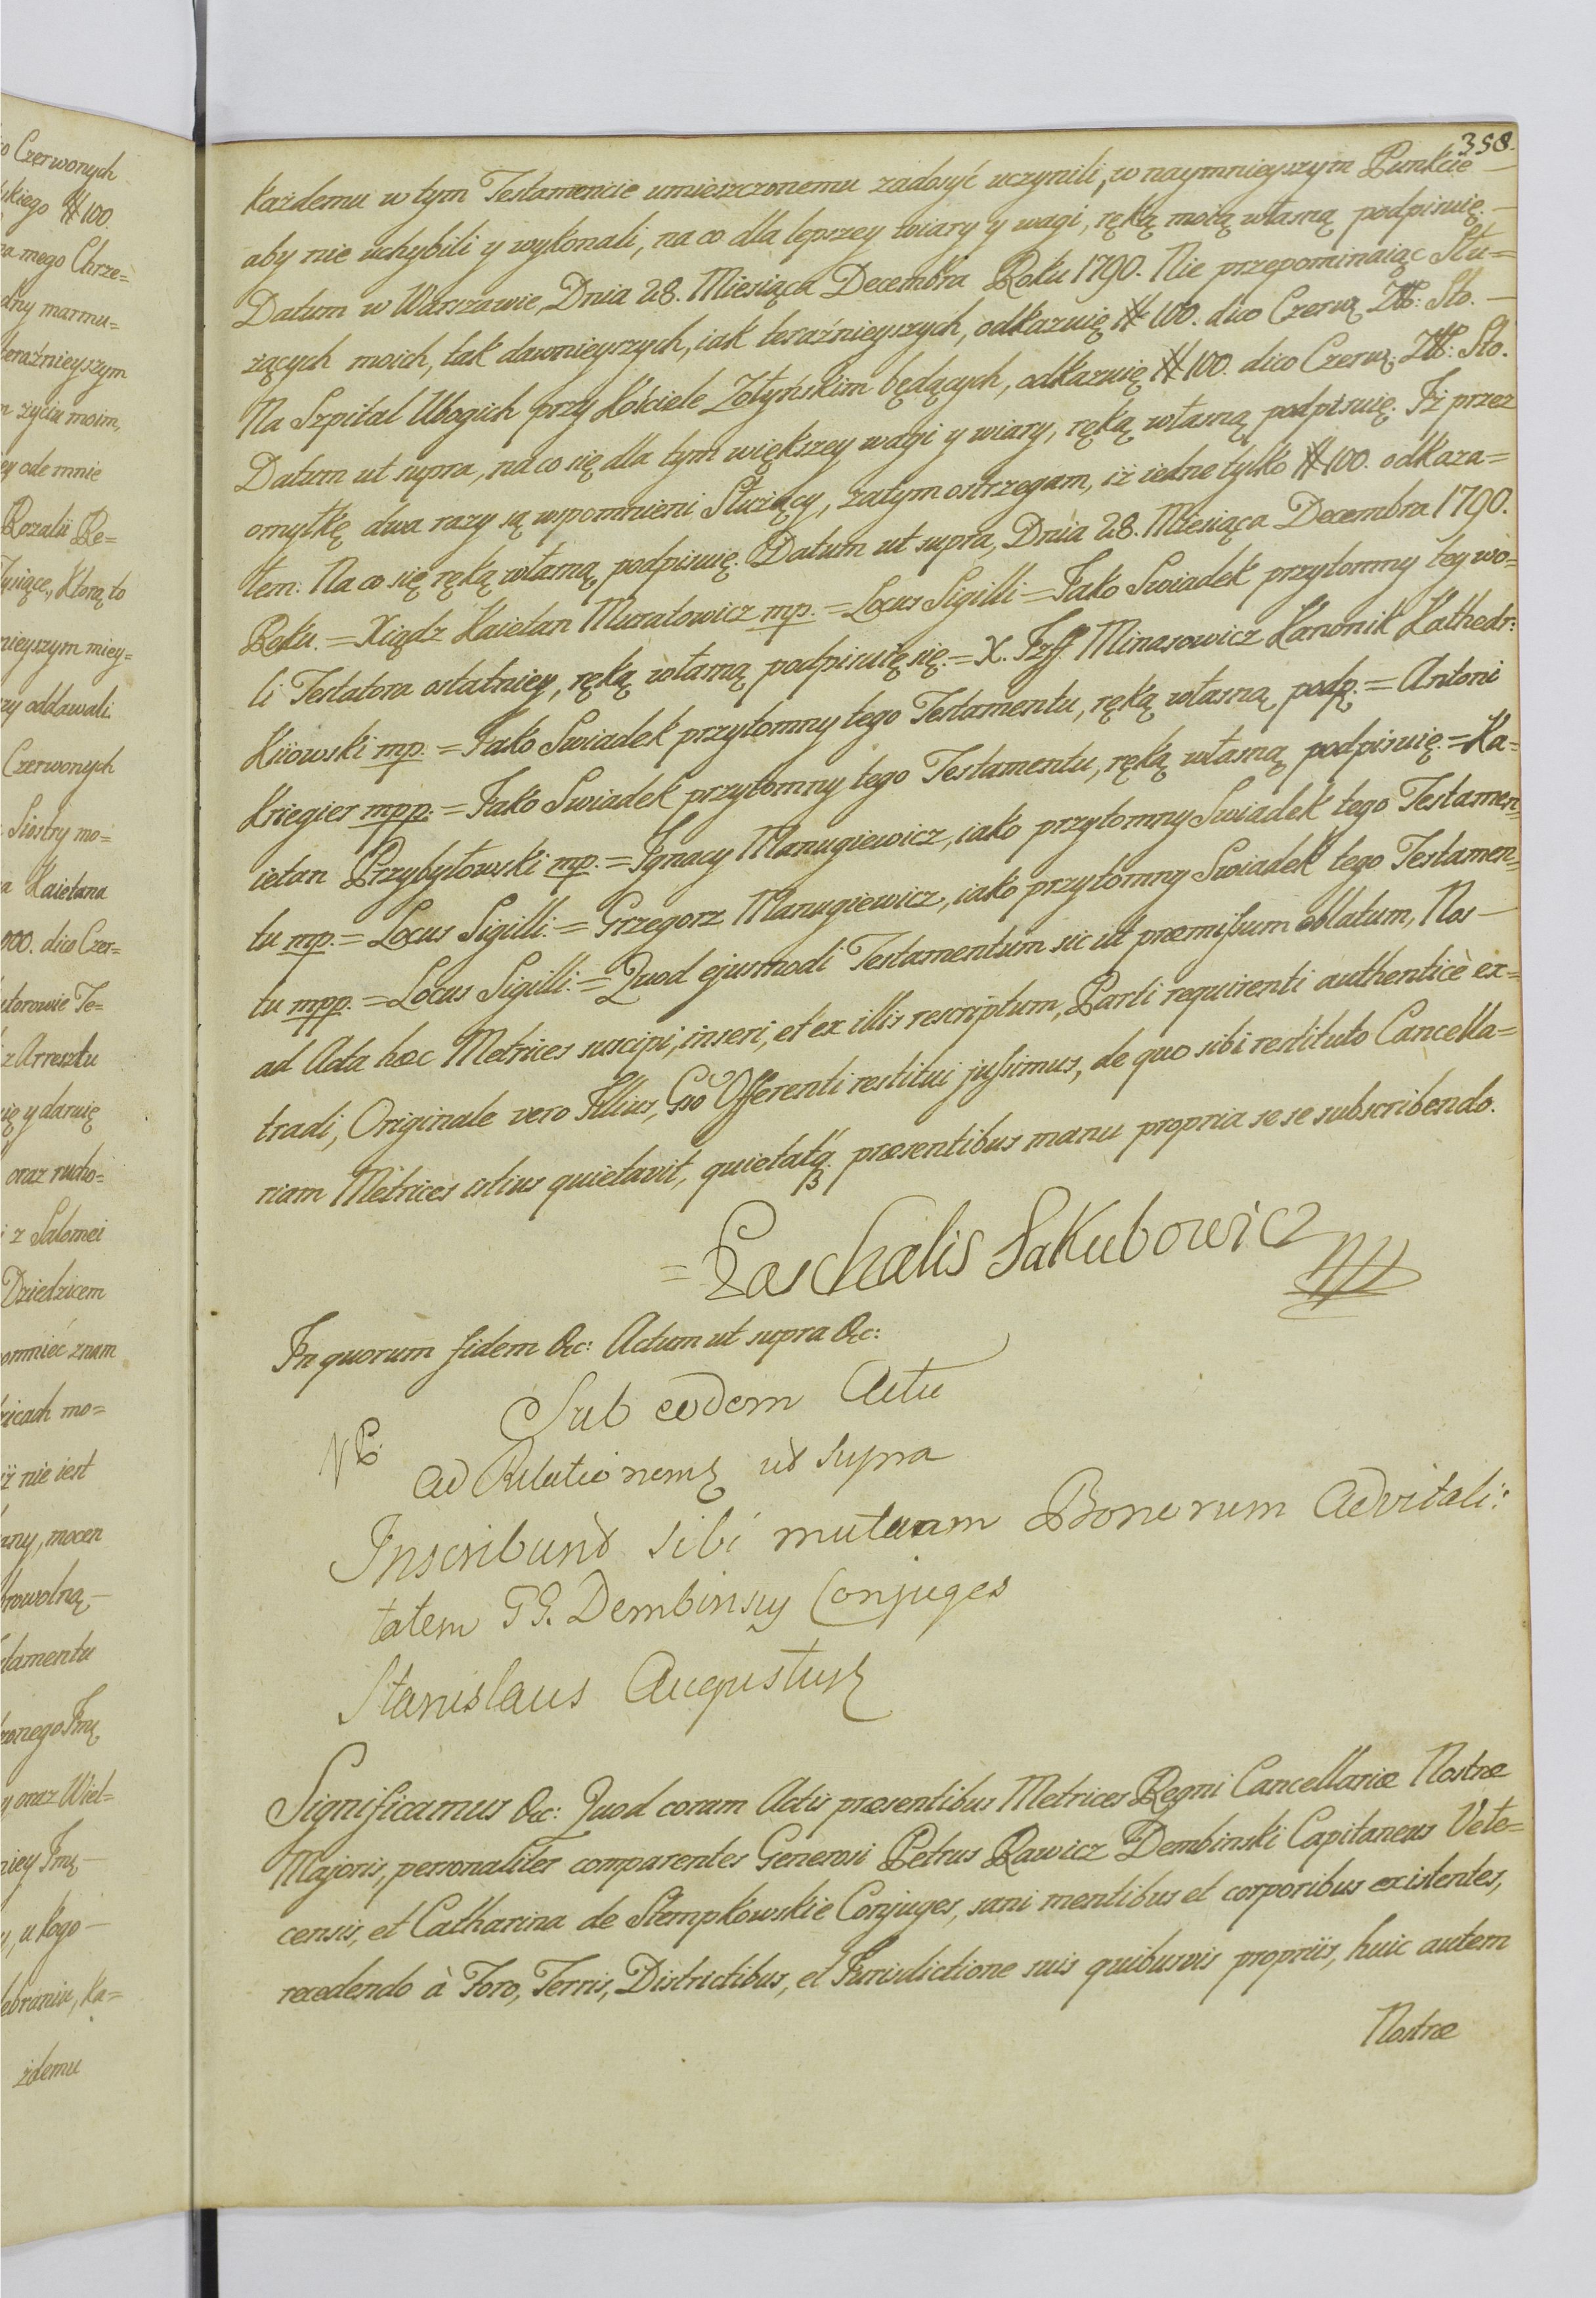 358.
każdemu w tym Testamencie umieszczonemu zadosyć uczynili, w naymnieyszym Punkcie —
aby nie uchybili y wykonali, na co dla lepszey wiary y wagi, ręką moią własną podpisuię. —
Datum w Warszawie, Dnia 28. Miesiąca Decembra Roku 1790. Nie przepominaiąc Słu=
żących moich, tak dawnieyszych, iak teraźnieyszych, odkazuię # 100. dico Czerw: Zł: Sto. —
Na Szpital Ubogich przy Kościele Zołyńskim będących, odkazuię # 100. dico Czerw: Zł: Sto.
Datum ut supra, na co się dla tym większey wagi y wiary, ręką własną podpisuię. Iż przez
omyłkę dwa razy są wspomnieni Służący, zatym ostrzegam, iż iedne tylko # 100. odkaza=
łem: Na co się ręką własną podpisuię. Datum ut supra, Dnia 28. Miesiąca Decembra 1790.
Roku. = Xiądz Kaietan Muratowicz mp. = Locus Sigilli = Jako Swiadek przytomny tey wo=
li Testatora ostatniey, ręką własną podpisuię się. = X. Jzff Minasowicz Kanonik Kathedr:
Kiiowski mp. = Jako Swiadek przytomny tego Testamentu, ręką własną podp. = Antoni
Kriegier mpp. = Jako Swiadek przytomny tego Testamentu, ręką własną podpisuię. = Ka=
ietan Przybyłowski mp. = Ignacy Manugiewicz, iako przytomny Swiadek tego Testamen=
tu mp. = Locus Sigilli. = Grzegorz Manugiewicz, iako przytomny Swiadek tego Testamen=
tu mpp. = Locus Sigilli. = Quod ejusmodi Testamentum sic ut præmissum oblatum, Nos —
ad Acta hæc Metrices suscipi, inseri, et ex illis rescriptum, Parti requirenti authenticè ex=
tradi, Originale vero Illius, Gso Offerenti restitui jussimus, de quo sibi restituto Cancella=
riam Metrices istius quietavit, quietatq. præsentibus manu propria se se subscribendo.
= Paschalis Jakubowicz
In quorum fidem &c: Actum ut supra &c:
Sub eodem Actu
Ad Relationem ut supra
Inscribunt sibi mutuam Bonorum Advitali:
tatem GG. Dembinscy Conjuges
Stanislaus Augustus
Significamus &c: Quod coram Actis præsentibus Metrices Regni Cancellariæ Nostræ
Majoris, personaliter comparentes Generosi Petrus Rawicz Dembinski Capitaneus Vete=
censis, et Catharina de Stempkowskie Conjuges, sani mentibus et corporibus existentes,
recedendo à Foro, Terris, Districtibus, et Jurisdictione suis quibusvis propriis, huic autem
Nostræ
o Czerwonych
kiego # 100.
mego Chrze=
dny marmu=
teraźnieyszym
życiu moim,
ey ode mnie
Rozalii Re=
Tysiące, Ktorą to
nieyszym miey=
oddawali
Czerwonych
Siostry mo=
Kaietana
000. dico Czer=
utorowie Te=
z Aresztu
ię y daruię
oraz rucho=
z Salomei
Dziedzicem
pomnieć znam
mo=
iż nie iest
any, mocen
browolną —
stamentu
zonego Imę
y oraz Wiel=
niey Imę —
u kogo —
ebraniu, ka=
żdemu